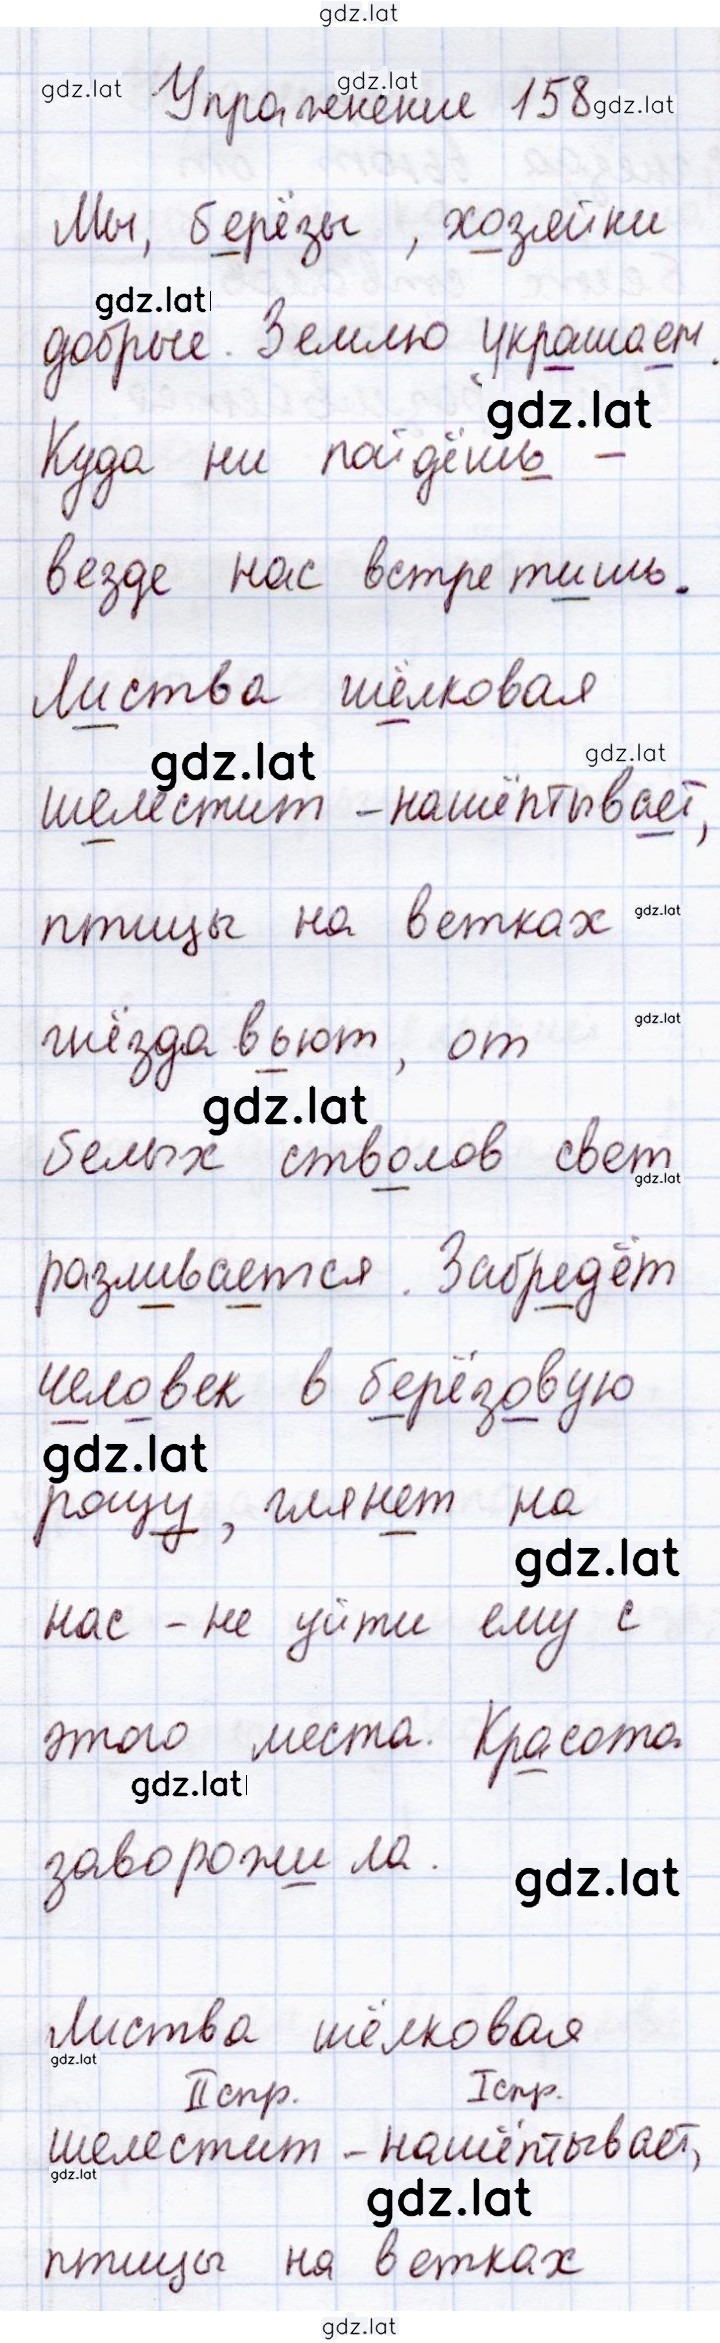 gdz.lat
gdz.lat
gdz.lat Упражнение 158 gdz.lat
Мы, берёзы, хозяйки
gdz.lat
добрые. Землю украшаем.
gdz.lat
Куда ни пойдёшь –
везде нас встретишь.
Листва шёлковая
gdz.lat
gdz.lat
шелестит – нашёптывает,
птицы на ветках
gdz.lat
гнёзда вьют, от
gdz.lat
gdz.lat
белых стволов свет
gdz.lat
разливается. Забредёт
человек в берёзовую
gdz.lat
рощу, глянет на
gdz.lat
нас – не уйти ему с
этого места. Красота
gdz.lat
заворожила.
gdz.lat
Листва шёлковая
gdz.lat
II спр. I спр.
шелестит – нашёптывает,
gdz.lat
gdz.lat
птицы на ветках
gdz.lat